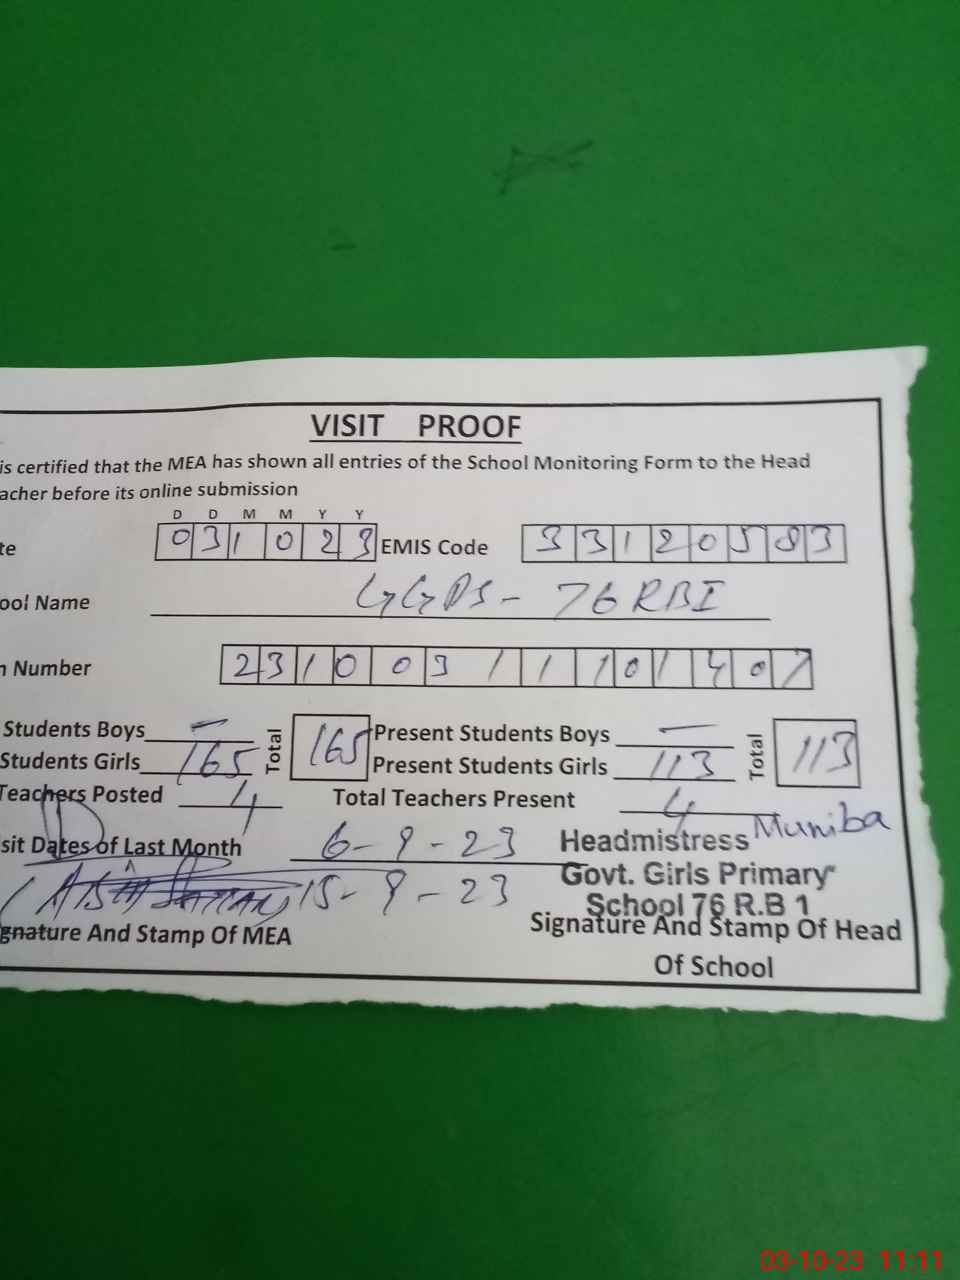 VISIT PROOF
is certified that the MEA has shown all entries of the School Monitoring Form to the Head
acher before its online submission
D D M M Y Y
te 031023 EMIS Code 33120583
ool Name GGPS - 76 RBI
Number 231003111101407
Students Boys — Total 165 Present Students Boys — Total 113
Students Girls 165 Present Students Girls 113
Teachers Posted 4 Total Teachers Present 4
sit Dates of Last Month 6-9-23 Headmistress Muniba
15-9-23 Govt. Girls Primary
School 76 R.B 1
gnature And Stamp Of MEA Signature And Stamp Of Head
Of School
03-10-23 11:11